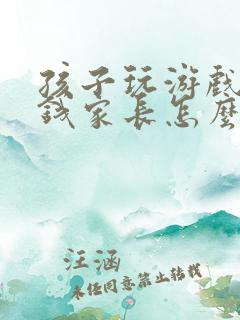 孩子玩游戏
钱家长怎么
汪涵
未经同意禁止转载